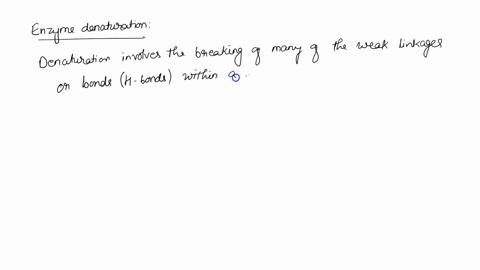 Enzyme denaturation:
Denaturation involves the breaking of many of the weak linkages
or bonds (H-bonds) within a